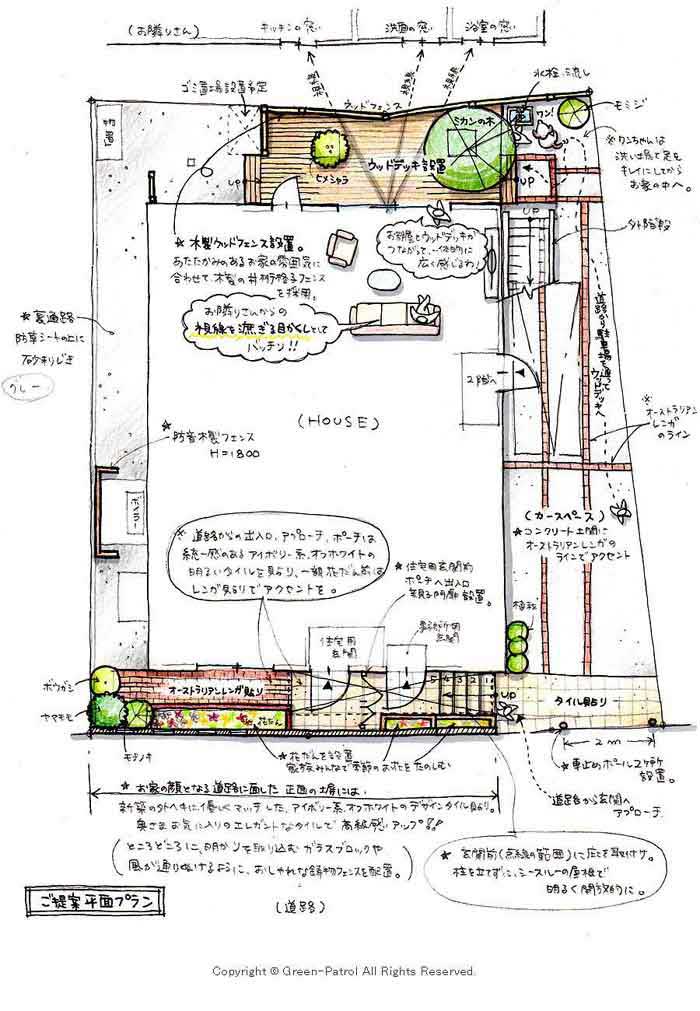 (お隣りさん)
キッチンの窓
洗面の窓
浴室の窓
視線
視線
視線
ゴミ置場設置予定
ウッドフェンス
水栓、流し
モミジ
物置
ミカンの木
ワン!
ウッドデッキ設置
ヒメシャラ
UP
UP
UP
※ワンちゃんは
洗い場で足を
キレイにしてから
お家の中へ。
外階段
★木製ウッドフェンス設置。
あたたかみのあるお家の雰囲気に
合わせて、木製の井桁格子フェンス
を採用。
お部屋とウッドデッキが
つながって、一体的に
広く感じるわ!
お隣りさんからの
視線を遮ぎる目かくしとして
バッチリ!!
道路から駐車場を通って
ウッドデッキへ
★裏通路
防草シートの上に
砂利じき
グレー
2階へ
★オーストラリアン
レンガ
のライン
(HOUSE)
★防音木製フェンス
H=1800
ボイラー
(カースペース)
★コンクリート土間に
オーストラリアンレンガの
ラインでアクセント
※道路からの出入口、アプローチ、ポーチは
統一感のあるアイボリー系、オフホワイトの
明るいタイルを貼り、一部花だん前は
レンガ貼りでアクセントを。
★住宅用玄関前
ポーチへ出入口
設置。
植栽
住宅用
玄関
玄関
ボウガシ
ヤマモモ
モチノキ
オーストラリアンレンガ貼り
花だん
5 4 3 2 1
UP
タイル貼り
2m
★花だんを設置
家族みんなで季節のお花をたのしむ
★車止めポール2ヶ所
設置。
道路から玄関へ
アプローチ
★お家の顔となる道路に面した正面の土塀には
新築の外ヘキに優しくマッチした、アイボリー系、オフホワイトのデザインタイル貼り。
奥さまお気に入りのエレガントなタイルで高級感いアップ!!
(ところどころに、明かりを取り込むガラスブロックや
風が通りぬけるように、おしゃれな鋳物フェンスを配置。)
★玄関前(点線の範囲)に庇を取付け。
柱を立てずに、シースルーの屋根で
明るく開放的に。
ご提案平面プラン
(道路)
Copyright © Green-Patrol All Rights Reserved.